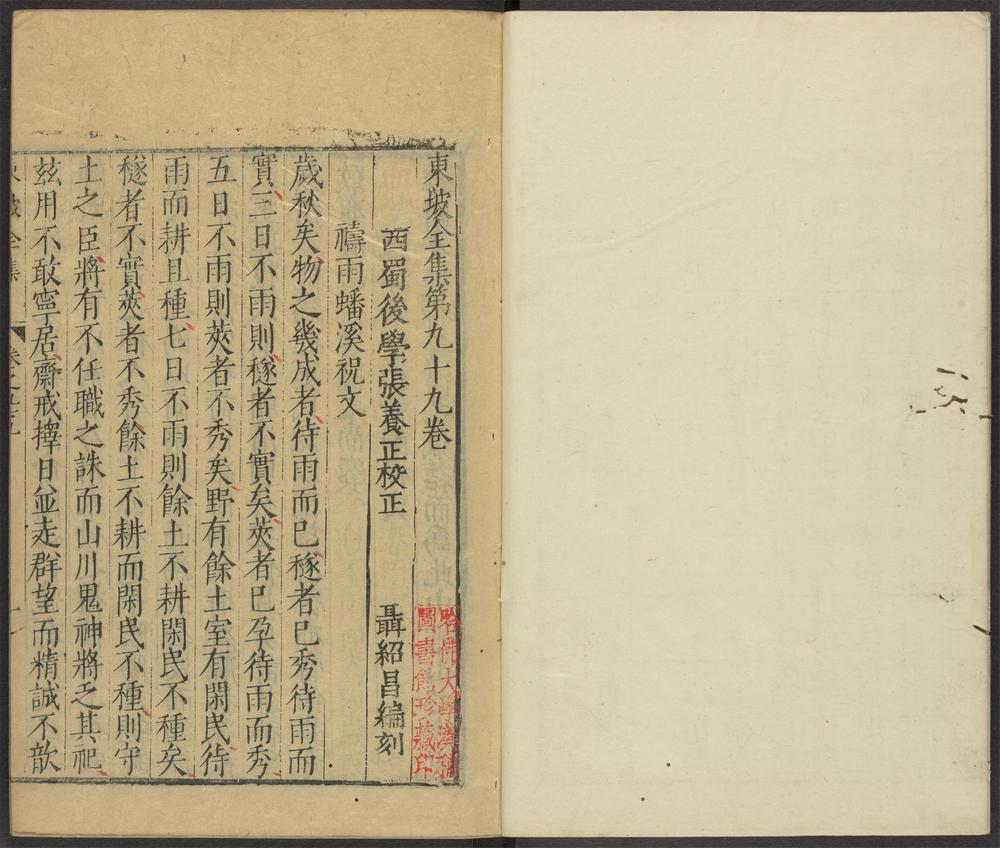 東坡全集第九十九卷
西蜀後學張養正校正 聶紹昌編刻
禱雨蟠溪祝文
歲秋矣物之幾成者待雨而已穟者已秀待雨而
實三日不雨則穟者不實矣莢者已孕待雨而秀
五日不雨則莢者不秀矣野有餘土室有閑民待
雨而耕且種七日不雨則餘土不耕閑民不種矣
穟者不實莢者不秀餘土不耕而閑民不種則守
土之臣將有不任職之誅而山川鬼神將乏其祀
玆用不敢寧居齋戒擇日並走群望而精誠不歆
東坡全集 卷之九十九 一
哈佛大學漢和
圖書館珍藏印